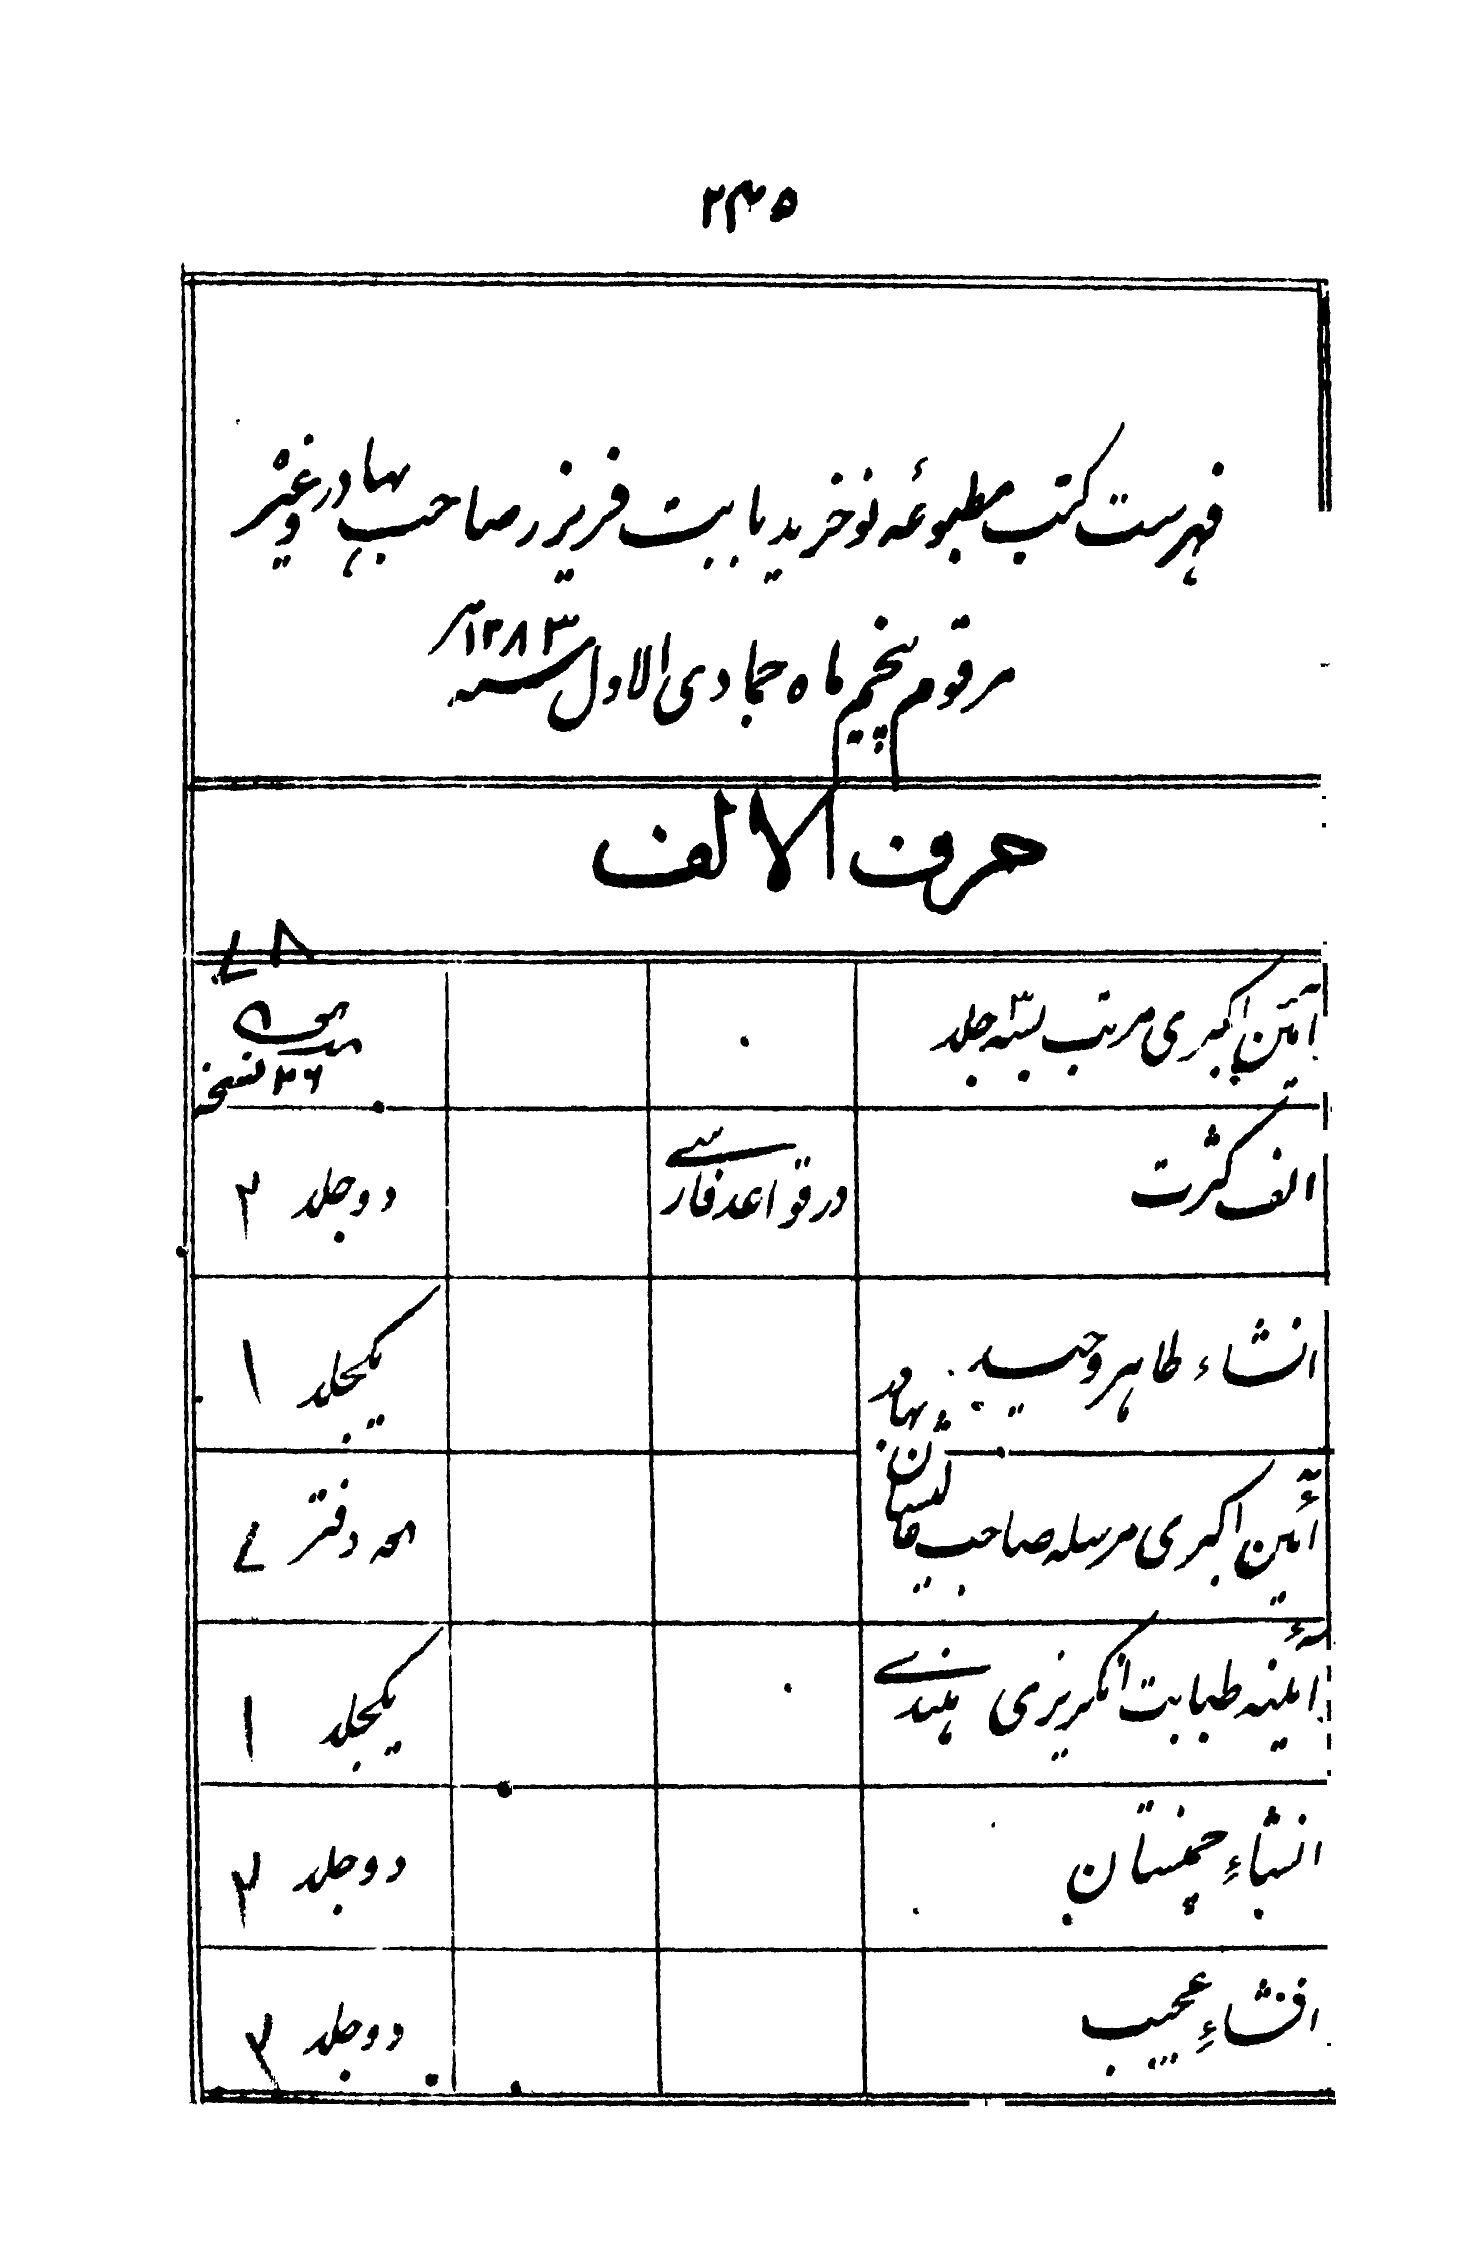 ۲۴۵
فهرست کتب مطبوعه نو خرید بابت فریزر صاحب بهادر وغیره
مرقوم پنجم ماه جمادی الاول سنه ۱۲۸۳
حرف الالف
آئین اکبری مرتب بسه جلد
۲۶ نسخه
الف کثرت
در قواعد فارسے
دو جلد ۲
انشاء طاهر وحید
یکجلد ۱
آئین اکبری مرسله صاحب عالیشان بهادر
دفتر
آئینه طبابت انگریزی هندے
یکجلد ۱
انشاءِ چمنستان
دو جلد ۲
افشاءِ عجیب
دو جلد ۲